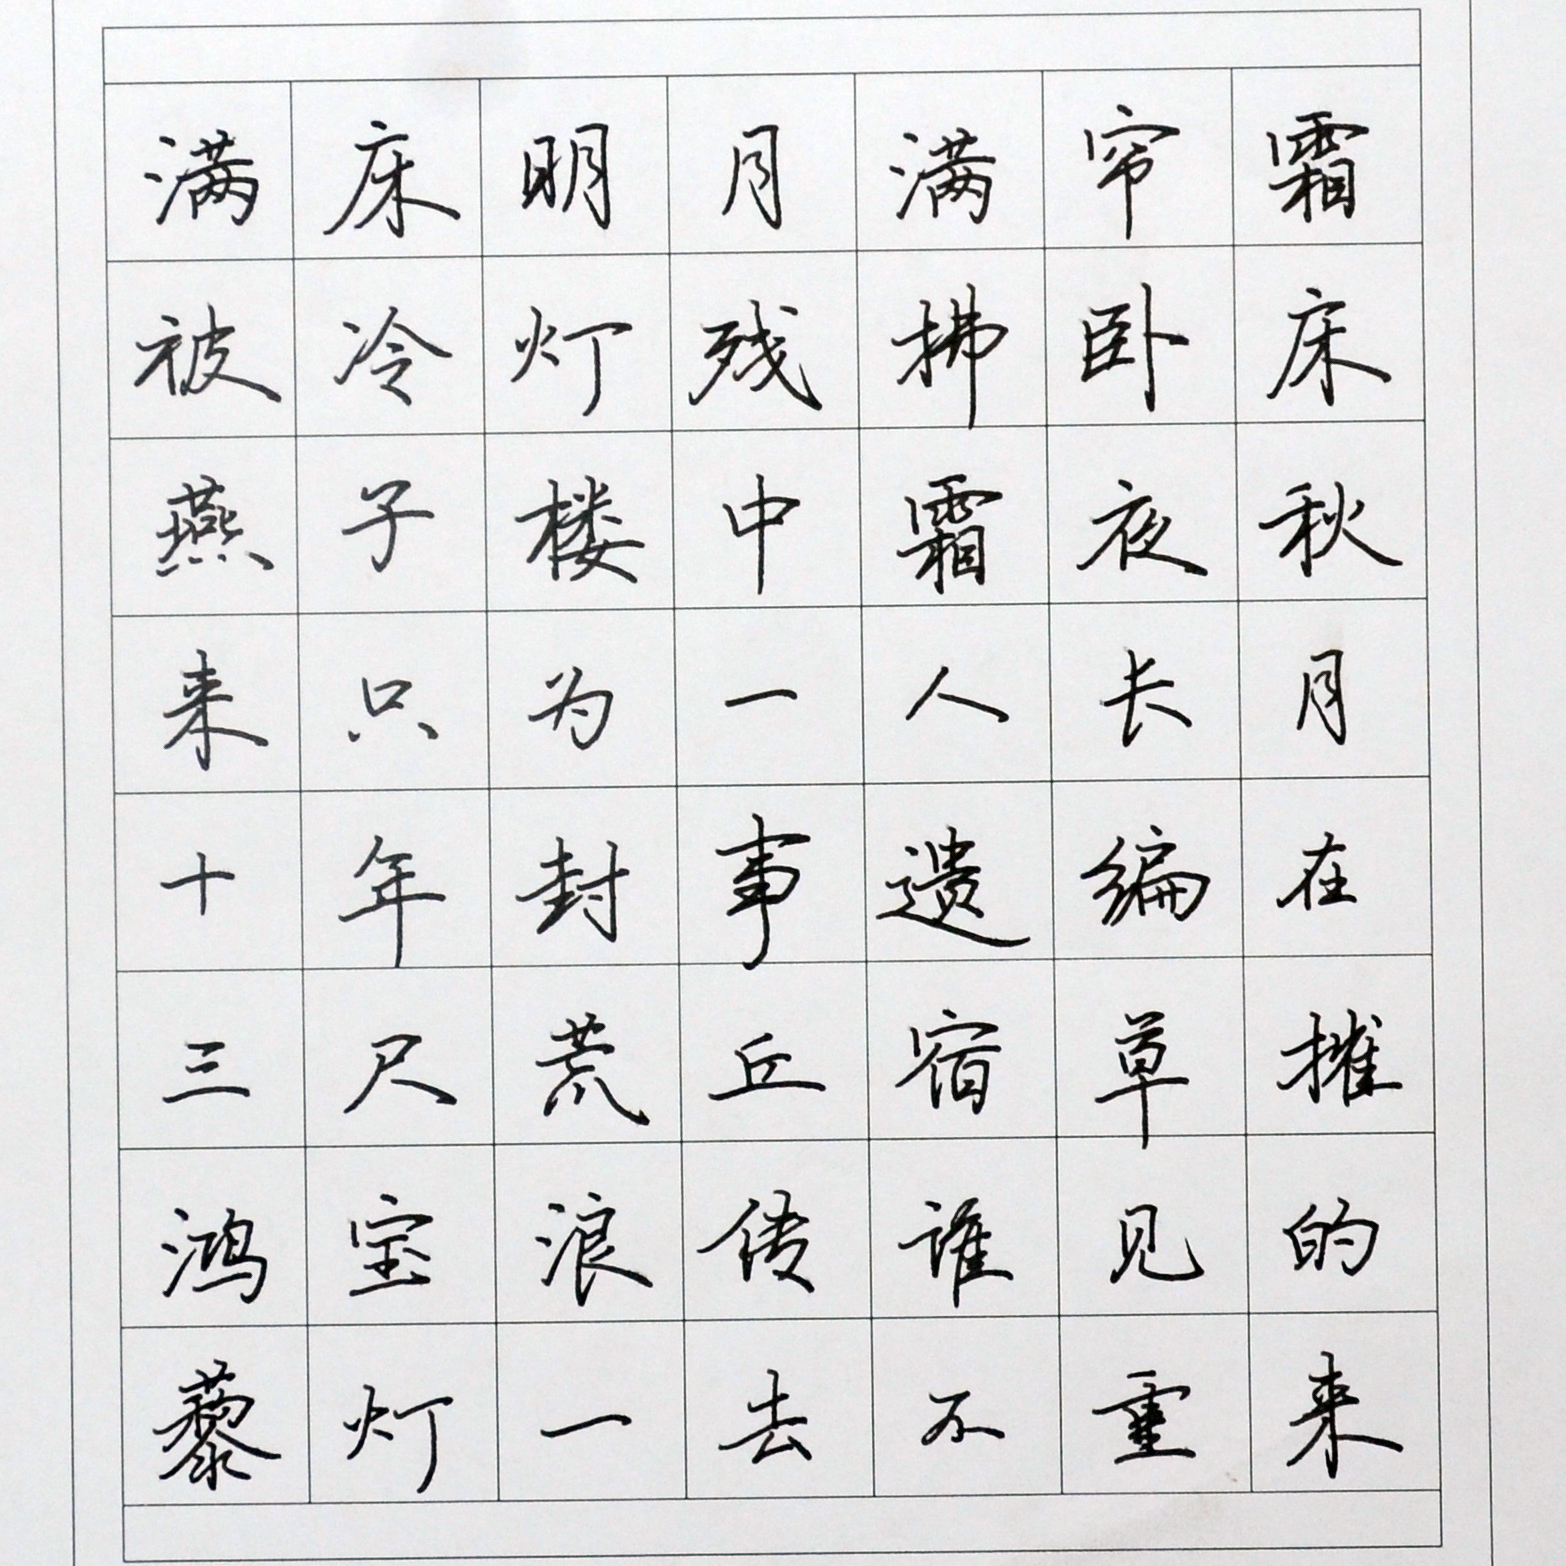 满床明月满帘霜
被冷灯残拂卧床
燕子楼中霜夜秋
来只为一人长月
十年封事遗编在
三尺荒丘宿草摧
鸿宝浪传谁见的
藜灯一去不重来